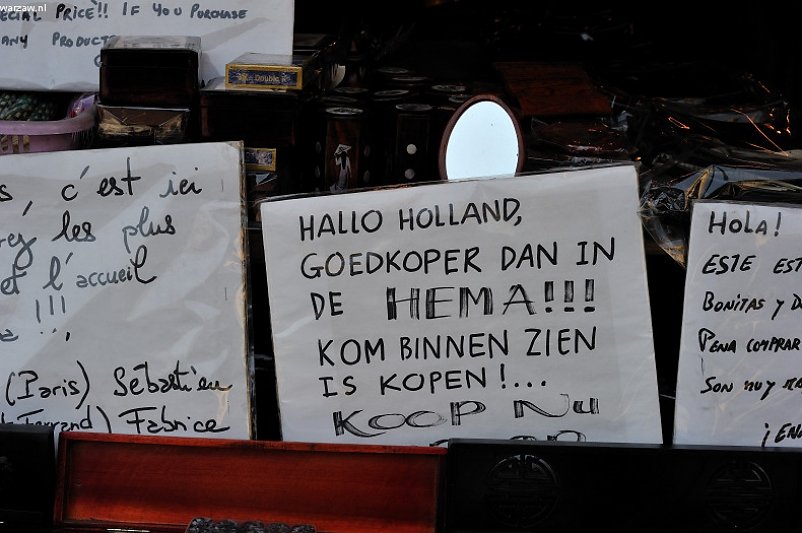 warzaw.nl
PRICE!! IF YOU PURCHASE
ANY PRODUCT
Double
c'est ici
les plus
et l'accueil
!!!
(Paris) Sébastien
Fabrice
HALLO HOLLAND,
GOEDKOPER DAN IN
DE HEMA!!!
KOM BINNEN ZIEN
IS KOPEN!...
KOOP NU
HOLA!
ESTE
BONITAS Y
PENA COMPRAR
SON MUY